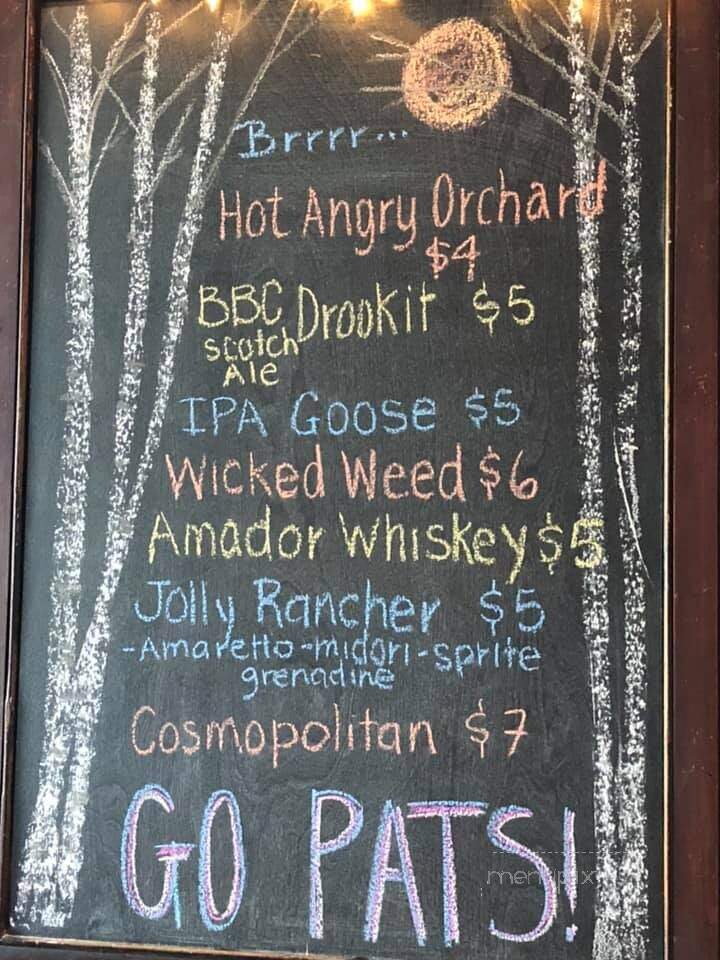 Brrrr...
Hot Angry Orchard
$4
BBC Drookit $5
scotch
Ale
IPA Goose $5
Wicked Weed $6
Amador Whiskey $5
Jolly Rancher $5
-Amaretto-midori-sprite
grenadine
Cosmopolitan $7
GO PATS!
menupix